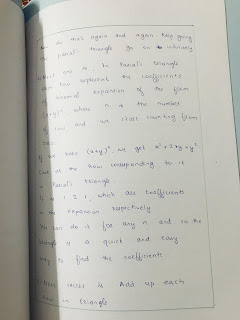 do this again and again. Keep going
the pascal's triangle go on infinitely
is, In Pascal's triangle
each row represent the coefficients
binomial expansion of the form
(x+y)ⁿ where n is the number
of row, and we start counting from
If we take (x+y)², we get x²+2xy+y²
Look at the row corresponding to it
in Pascal's triangle
1 2 1, which are coefficients
the expansion respectively
can do it for any n and so the
triangle is a quick and easy
way to find the coefficients
is Add up each
row in triangle